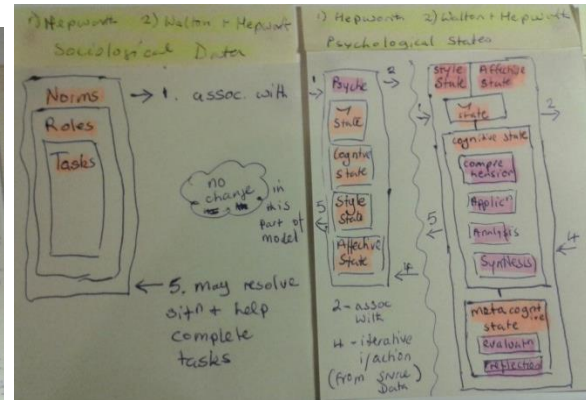 1) Hepworth 2) Walton + Hepworth
Sociological Data
Norms
Roles
Tasks
1. assoc. with
no change
in this part of model
5. may resolve
sitⁿ + help
complete
tasks
1) Hepworth 2) Walton + Hepworth
Psychological States
1
Psyche
2
State
Cognitive
State
Style
State
Affective
State
5
4
2 - assoc
with
4 - iterative
i/action
(from Source
Data)
Style
State
Affective
State
1
state
2
cognitive state
compre
hension
Applicn
Analysis
Synthesis
5
4
metacognitive
state
evaluatn
reflection